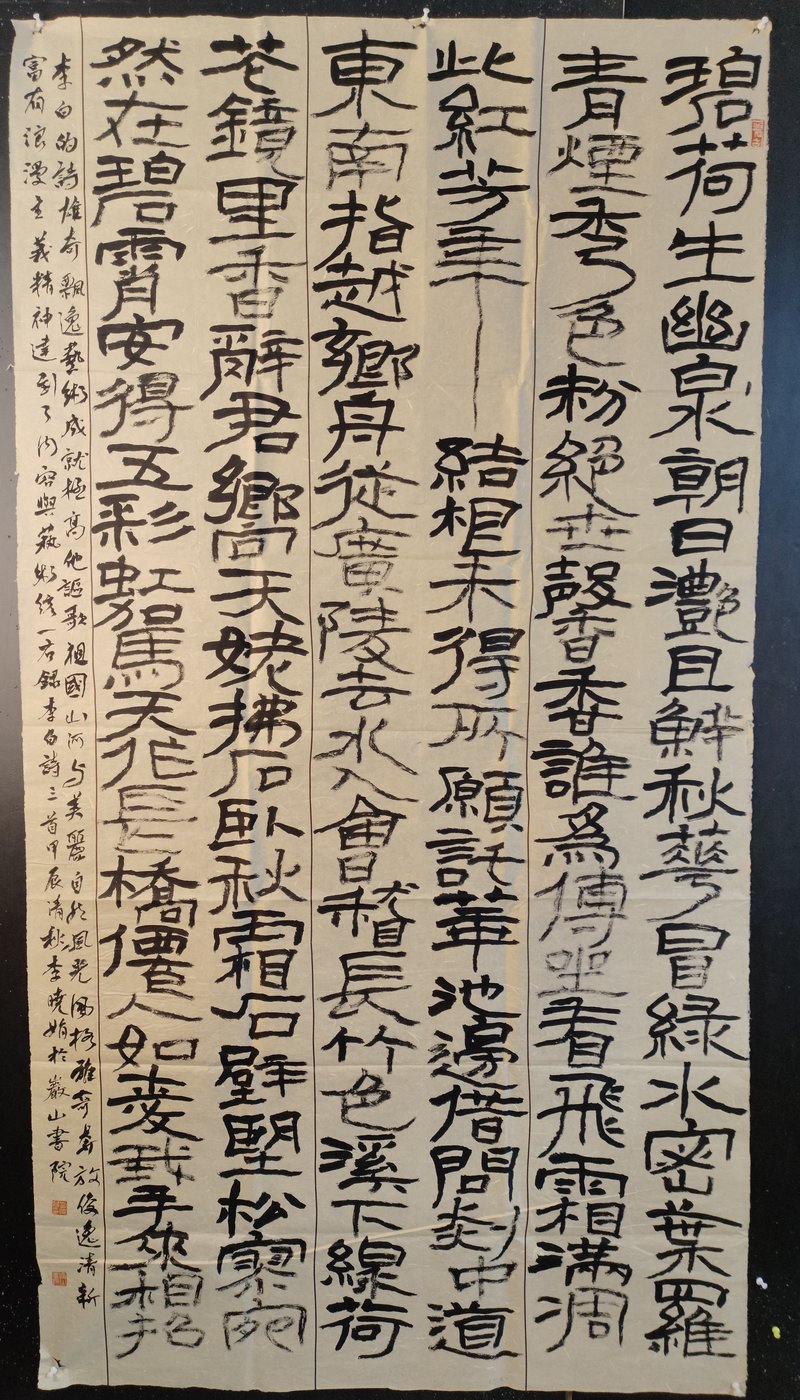 碧荷生幽泉朝日灧且鮮秋華冒緑水密葉羅
青煙秀色粉絕世馨香誰爲傳坐看飛霜滿凋
此紅芳年結根未得所願託華池邊借問剡中道
東南指越鄉舟從廣陵去水入會稽長竹色溪下綠荷
花鏡里香辭君鄉向天姥拂石臥秋霜石壁望松寥宛
然在碧霄安得五彩虹駕天作長橋僊人如愛我手來相招
李白的詩雄奇飄逸藝術成就極高他謳歌祖國山河与美麗自然風光風格雄奇奔放俊逸清新
富有浪漫主義精神達到了内容與藝術統一右錄李白詩三首甲辰清秋李曉娟於巖山書院